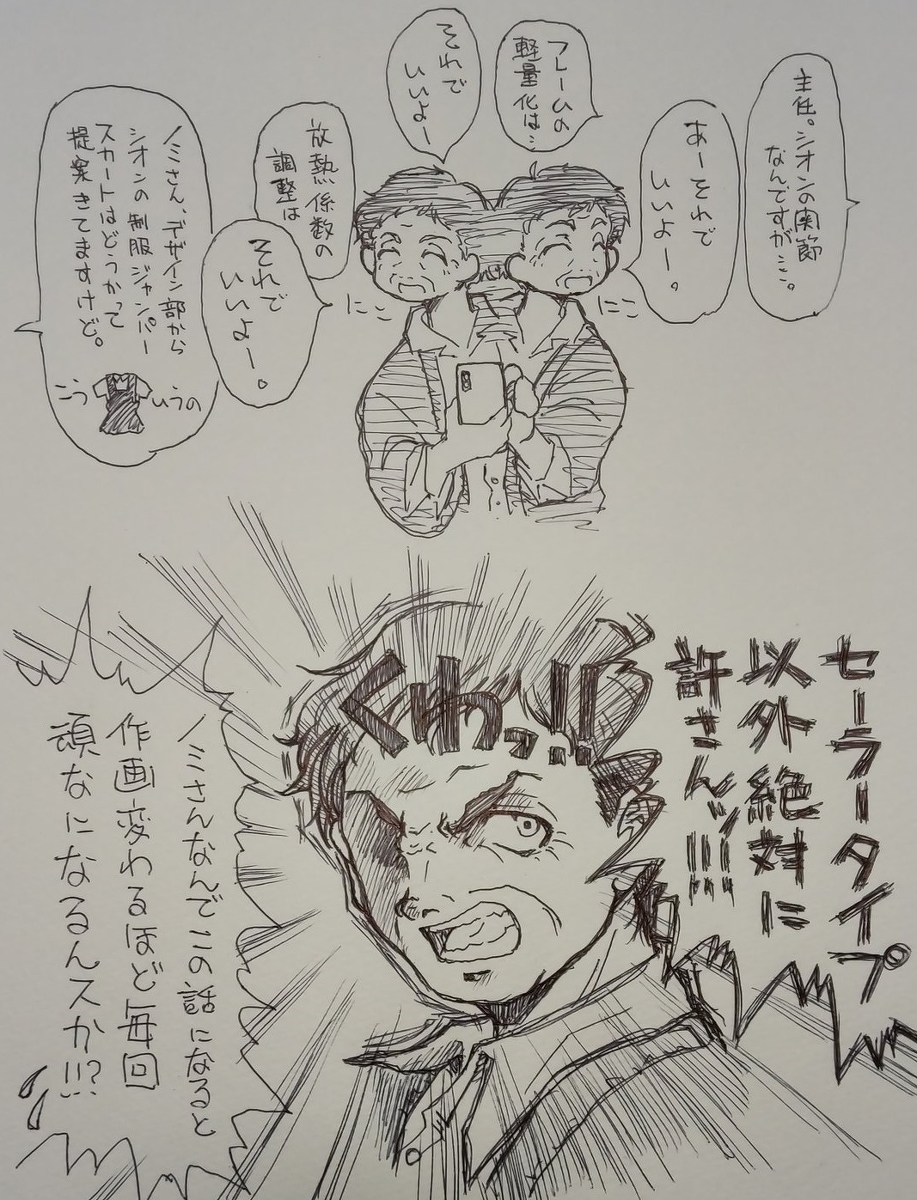 主任。シオンの関節
なんですが…。
あーそれで
いいよー。
フレームの
軽量化は…
それで
いいよー
放熱係数の
調整は
それで
いいよー。
ノミさん、デザイン部から
シオンの制服ジャンパー
スカートはどうかって
提案きてますけど。
こう
いうの
にこ
にこ
セーラータイプ
以外絶対に
許さんッ!!!
くわっ!!
ノミさんなんでこの話になると
作画変わるほど毎回
頑なになるんスか!!?